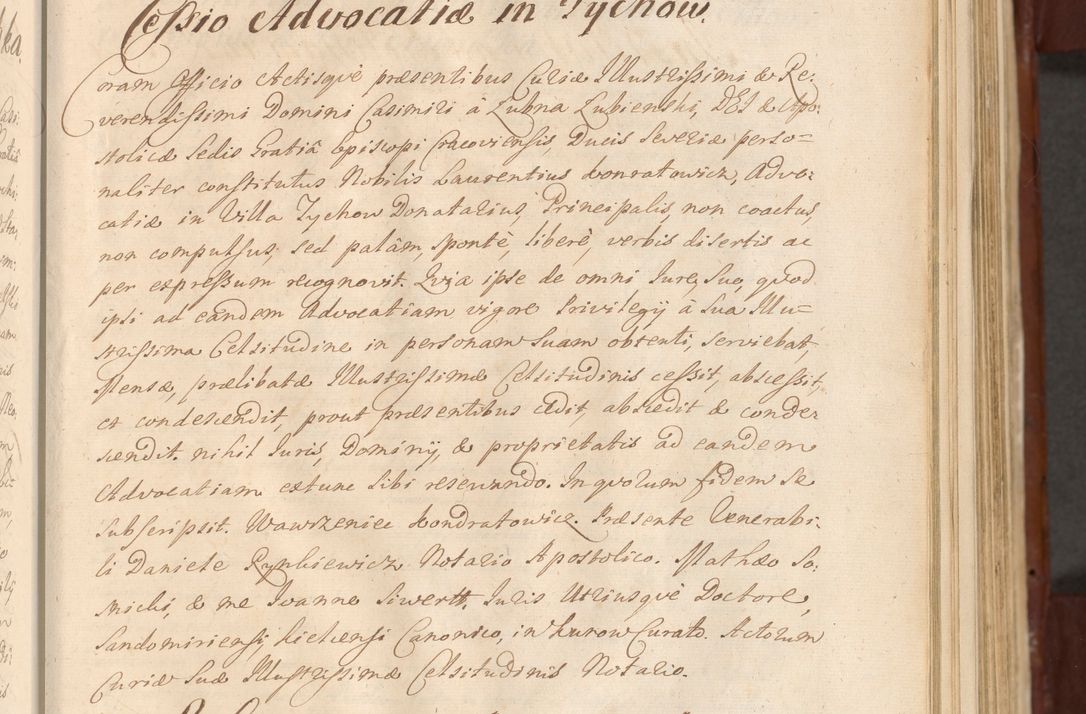 Cessio Advocatiæ in Tychow.
Coram Officio Actisqvè præsentibus Curiæ Illustrissimi & Re:
verendissimi Domini Casimiri à Łubna Łubienski, DEI & Apo:
stolicæ Sedis Gratiâ Episcopi Cracoviensis, Ducis Severiæ perso=
naliter constitutus Nobilis Laurentius Konratowicz, Advo:
catiæ in Villa Tychow Donatarius, Principalis, non coactus,
non compulsus, sed palâm, spontè, liberè, verbis disertis ac
per expressum recognovit. Qvia ipse de omni Jure, Suo, qvod
ipsi ad eandem Advocatiam vigore Privilegÿ à Sua Illu=
strissima Celsitudine in personam Suam obtenti, serviebat,
Mensæ, prælibatæ Illustrissimæ Celsitudinis cessit, abscessit,
et condescendit, prout præsentibus cedit, abscedit & conde:
scendit. nihil Juris, Dominÿ, & proprietatis ad eandem
Advocatiam extunc Sibi reservando. In qvorum fidem se
Subscripsit. Wawrzeniec Kondratowicz. Præsente Venerabi:
li Daniele Rynkiewicz Notario Apostolico. Mathæo So:
nicki, & me Joanne Siwertt. Juris Utriusqvè Doctore,
Sandomiriensi, Kielcensi Canonico, in Kurow Curato. Actorum
Curiæ Suæ Illustrissimæ Celsitudinis Notario.